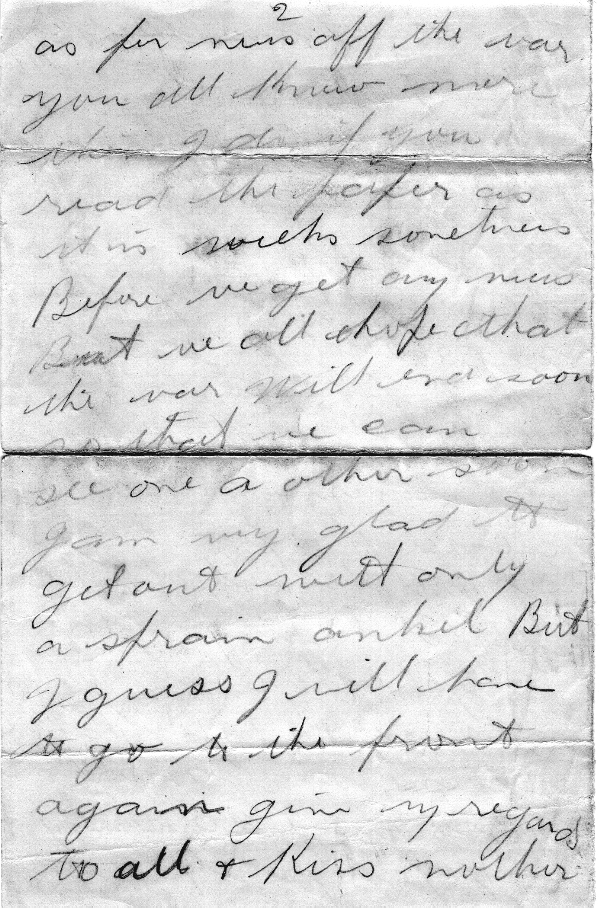 2
as for news off the war
you all know more
than I do if you
read the paper as
it is weeks sometimes
Before we get any news
But we all hope that
the war will end soon
so that we can
see one a other soon
I am very glad to
get out with only
a sprain ankel But
I guess I will have
to go to the front
again give my regards
to all & Kiss mother